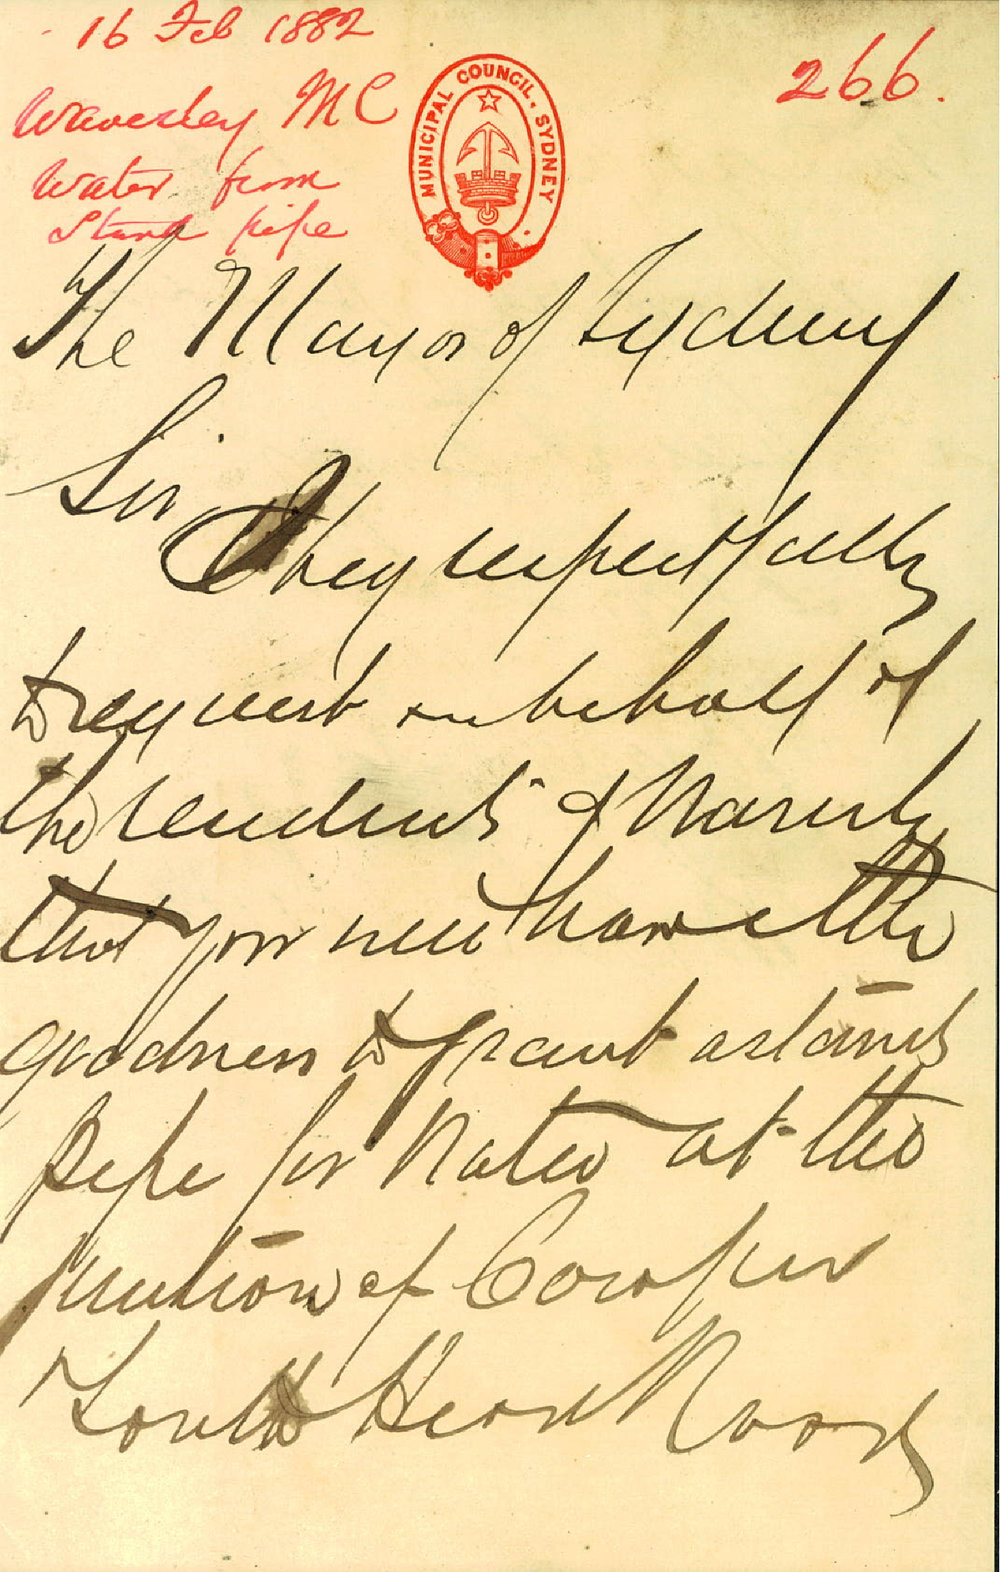 16 Feb 1882
266.
Waverley M C
Water from
Stand pipe
MUNICIPAL COUNCIL. SYDNEY
The Mayor of Sydney
Sir,
I beg respectfully
to request on behalf of
the residents of Waverley
that you will have the
goodness to grant a stand
pipe for Water at the
junction of Cowper
South Head Roads